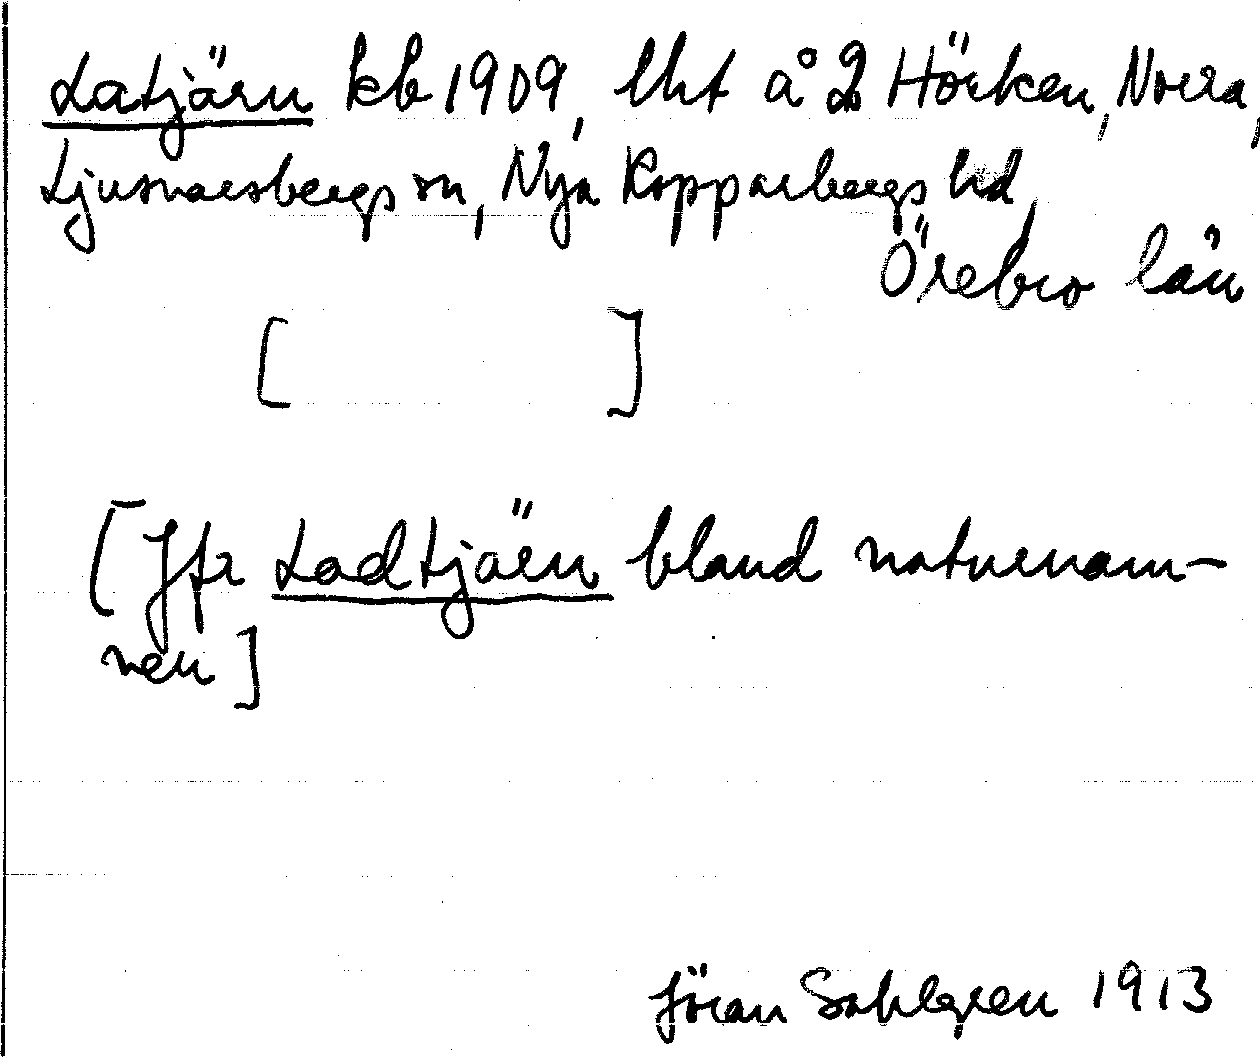 Latjärn kb 1909, lht å 2 Hörken, Norra,
Ljusnarsbergs sn, Nya Kopparbergs hd,
Örebro län
[ ]
[Jfr Ladtjärn bland naturnam-
nen]
Jöran Sahlgren 1913